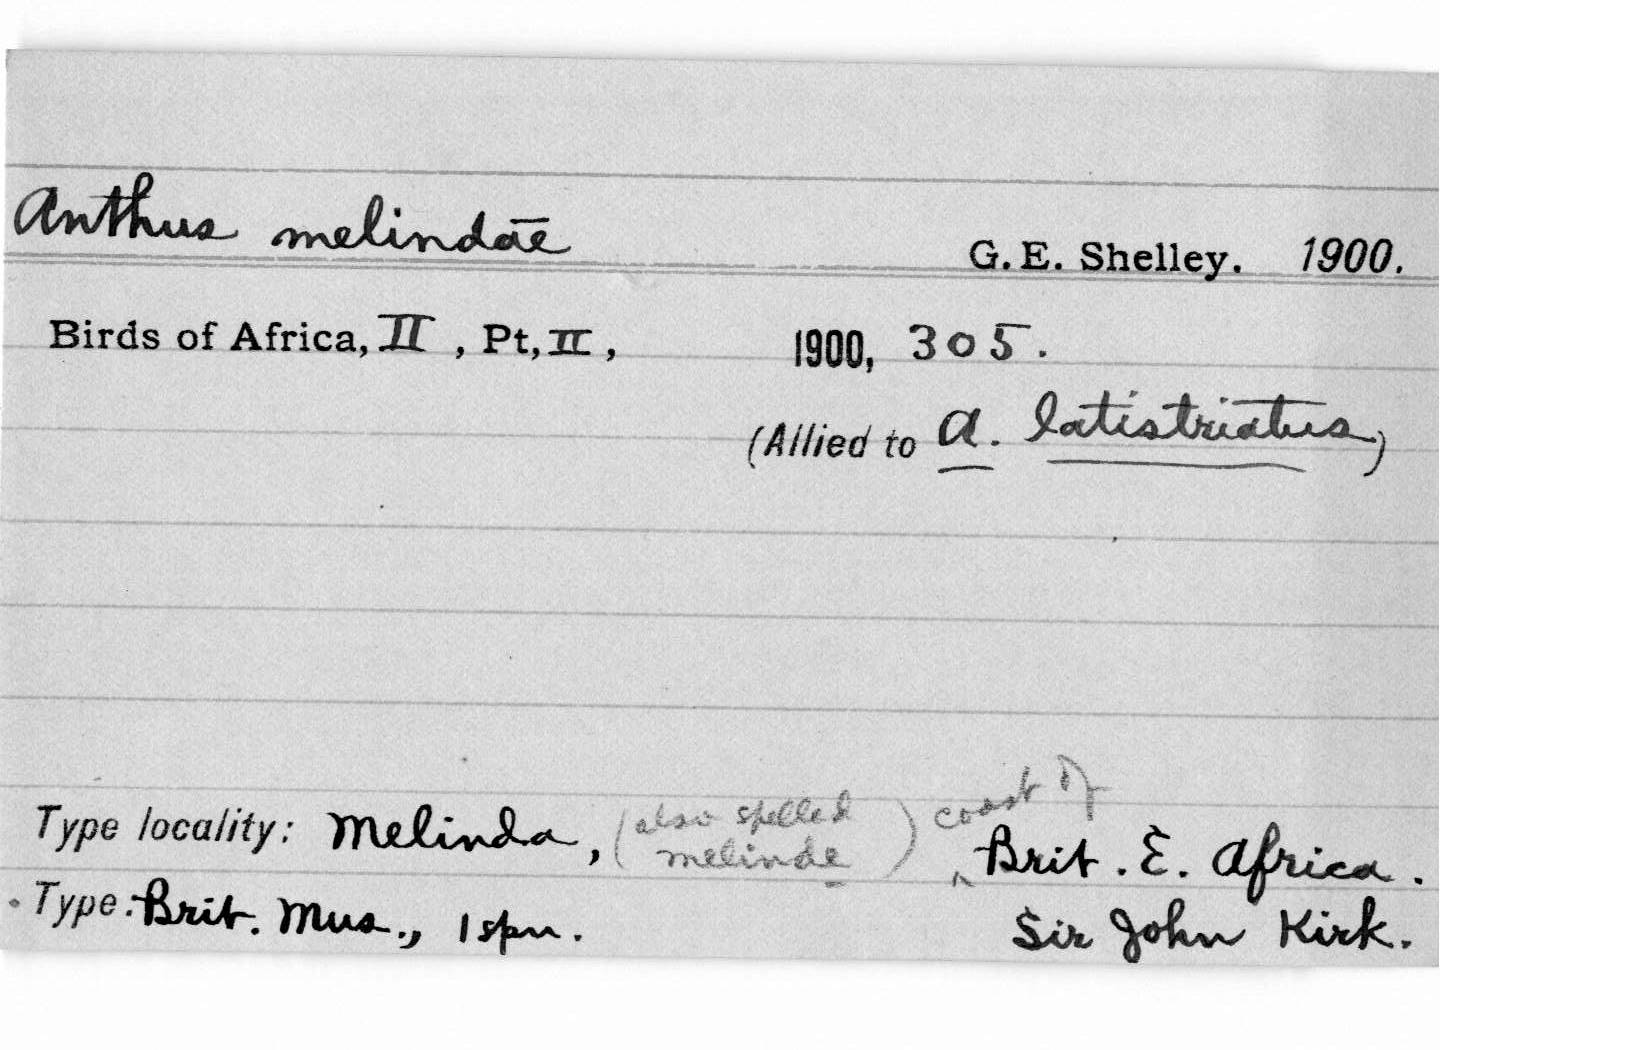 Anthus melindae G. E. Shelley. 1900.
Birds of Africa, II, Pt, II, 1900, 305.
(Allied to A. latistriatus)
Type locality: Melinda, (also spelled melinde) coast of Brit. E. Africa.
Type: Brit. Mus., 1 spn. Sir John Kirk.